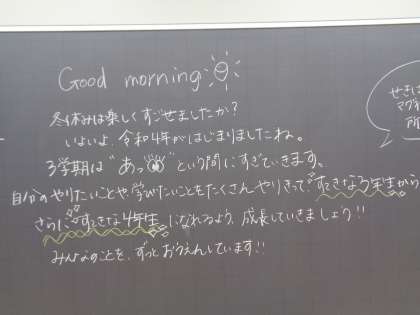 Good morning
冬休みは楽しくすごせましたか?
いよいよ、令和4年がはじまりましたね。
3学期は"あっ"という間にすぎていきます。
自分のやりたいことや、学びたいことをたくさんやりきって、すてきな3年生から
さらに、すてきな4年生になれるよう、成長していきましょう!!
みんなのことを、ずっとおうえんしています!!
せきは
マグネ
所